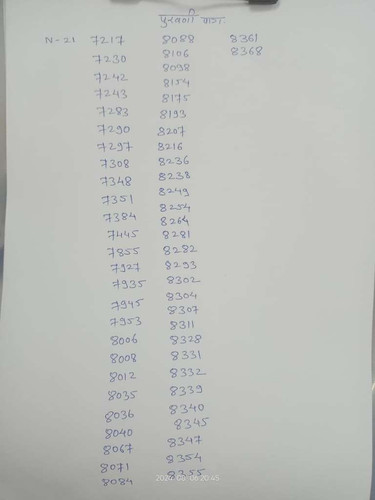 पुरवणी
N-21 7217
7230
7242
7243
7283
7290
7297
7308
7348
7351
7384
7445
7855
7927
7935
7945
7953
8006
8008
8012
8035
8036
8040
8067
8071
8084
8088
8106
8098
8154
8175
8193
8207
8216
8236
8238
8249
8254
8264
8281
8282
8293
8302
8304
8307
8311
8328
8331
8332
8339
8340
8345
8347
8354
8355
8361
8368